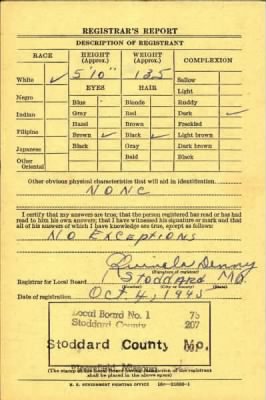 REGISTRAR'S REPORT
DESCRIPTION OF REGISTRANT
RACE HEIGHT (Approx.) WEIGHT (Approx.) COMPLEXION
5'10" 135
White ✓ Sallow
EYES HAIR Light
Negro Blue Blonde Ruddy
Indian Gray Red Dark ✓
Hazel Brown Freckled
Filipino Brown ✓ Black ✓ Light brown
Japanese Black Gray Dark brown
Other Oriental Bald Black
Other obvious physical characteristics that will aid in identification
NONE
I certify that my answers are true; that the person registered has read or has had
read to him his own answers; that I have witnessed his signature or mark and that
all of his answers of which I have knowledge are true, except as follows:
NO EXCEPTIONS
Denny
(Signature of registrar)
Registrar for Local Board 1 STODDARD MO.
(Number) (City or County) (State)
Date of registration OCT. 4, 1945
Local Board No. 1 75
Stoddard County 207
Stoddard County Mo.
Bloomfield, Missouri
(The stamp of the Local Board having jurisdiction of the registrant
shall be placed in the above space)
U. S. GOVERNMENT PRINTING OFFICE 16—21630-1